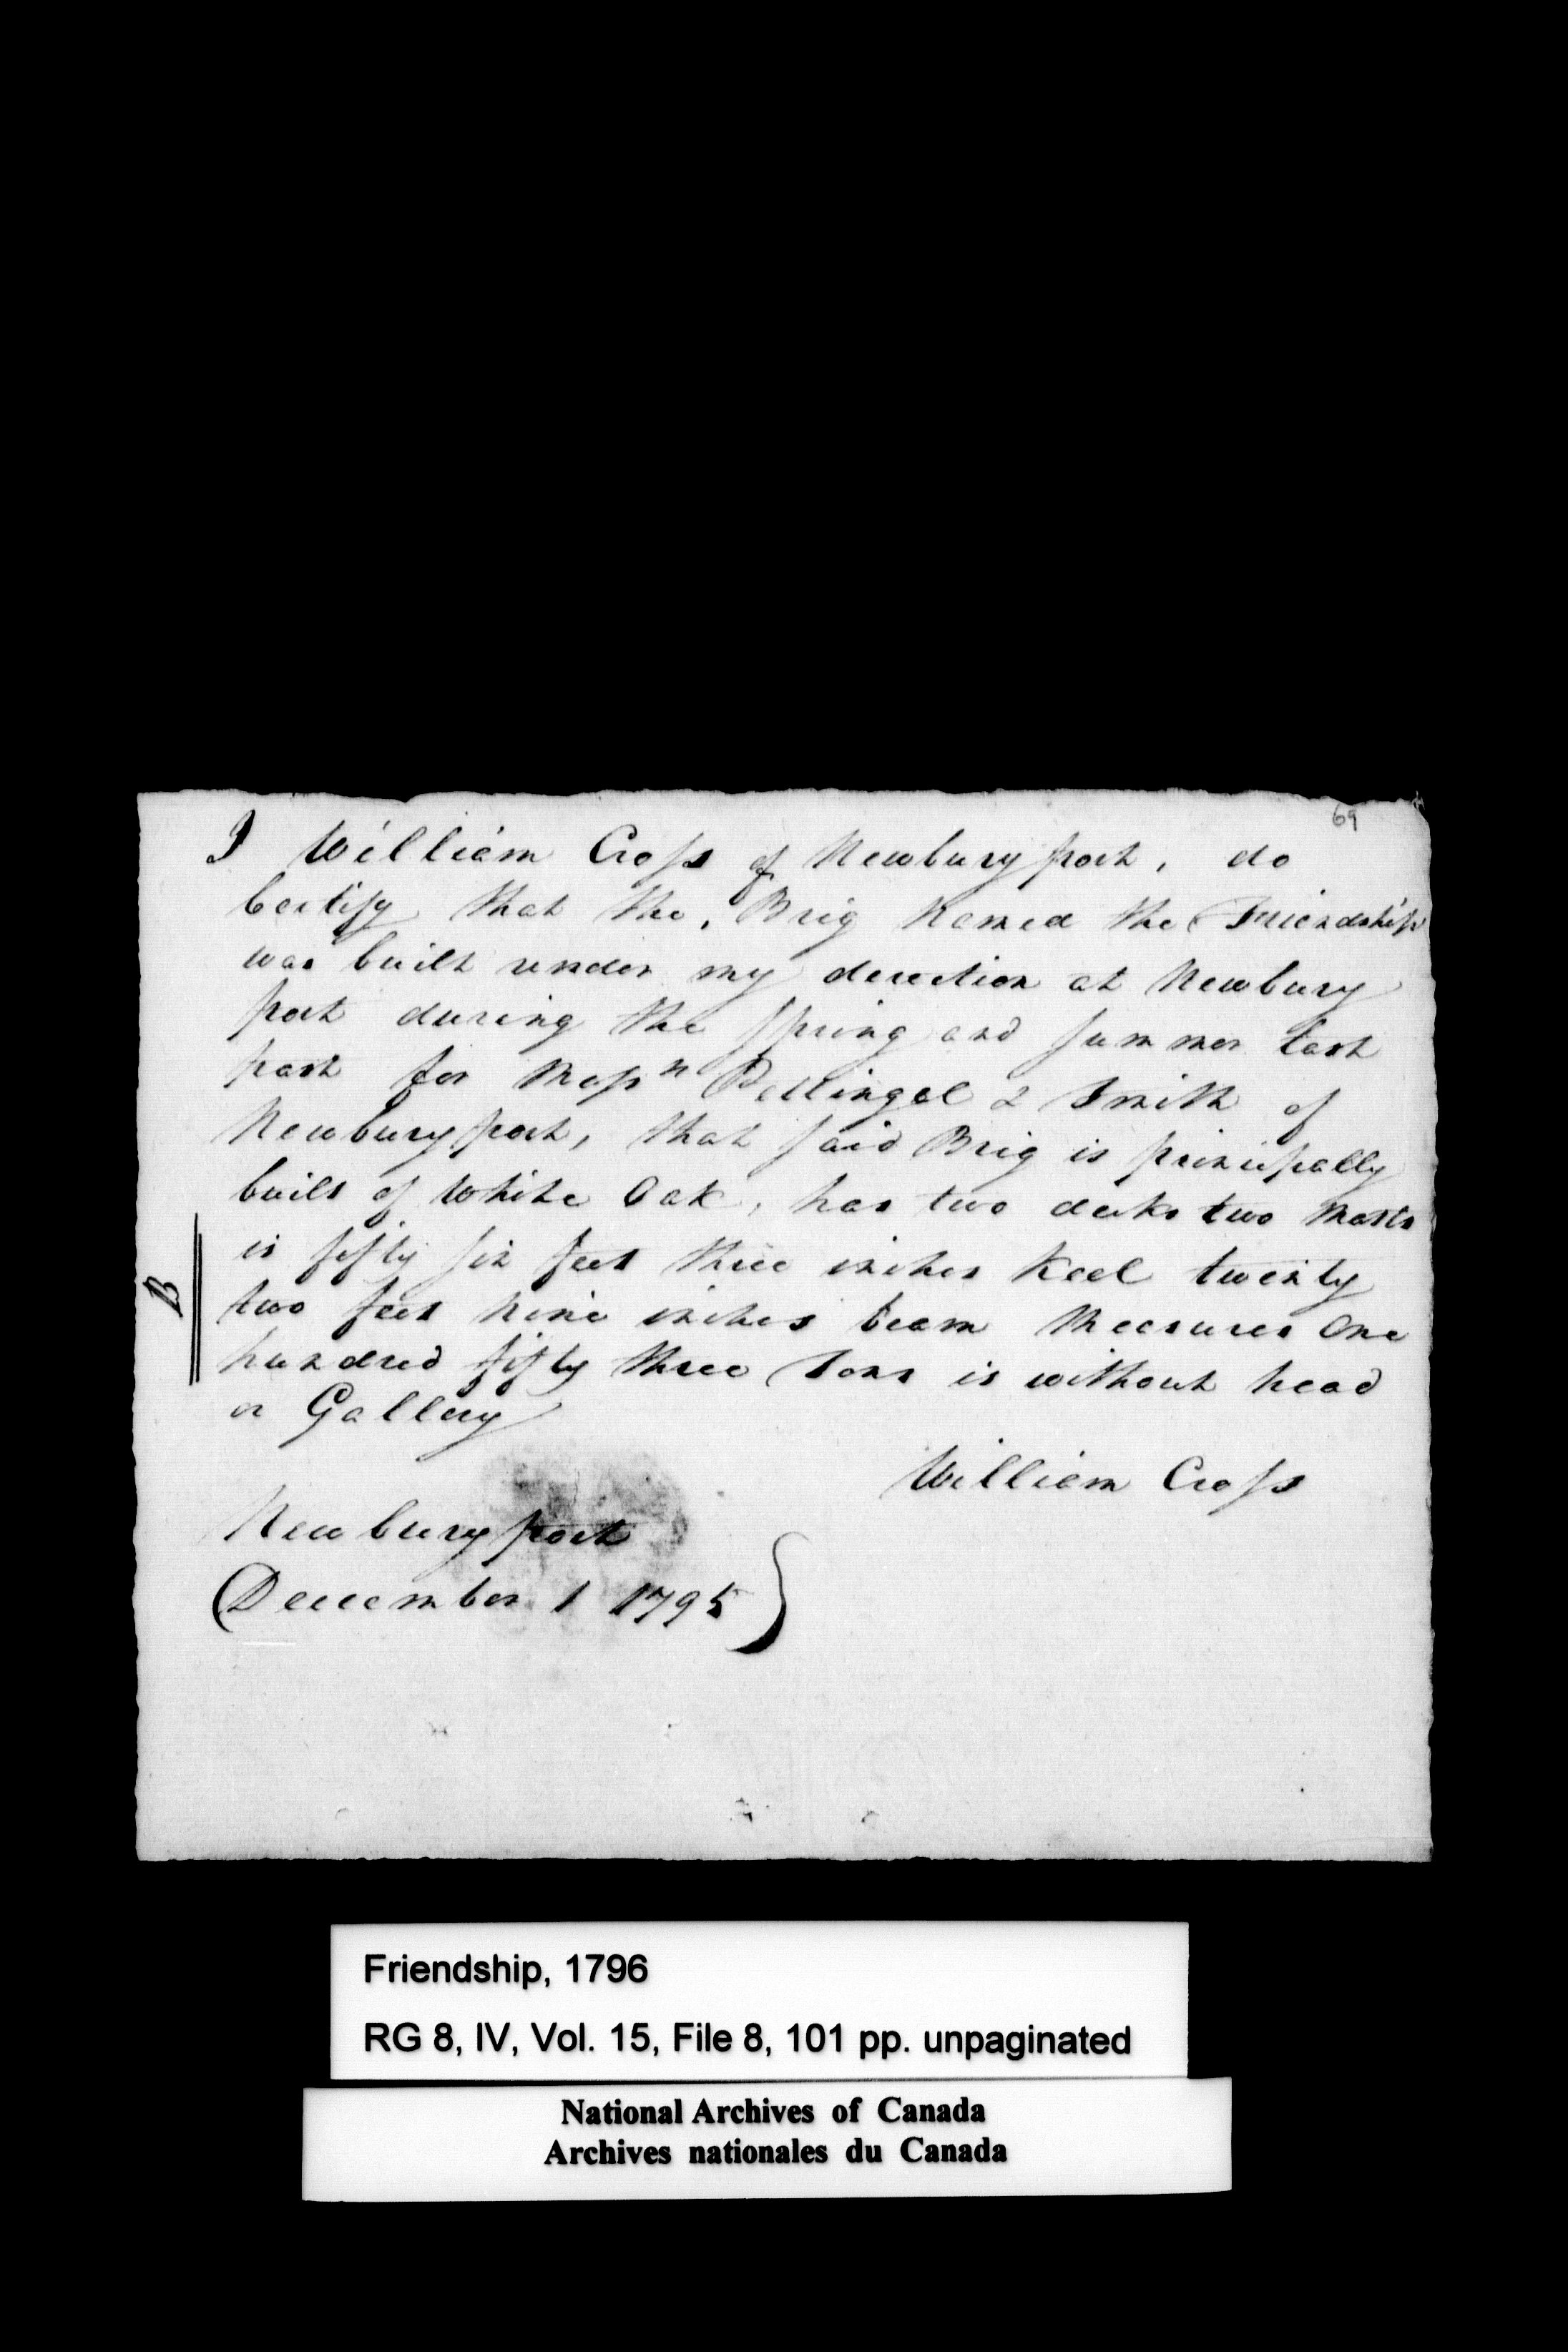 69
I William Cross of Newbury port, do
Certify that the, Brig Named the Friendship
was built under my derection at Newbury
port during the Spring and Summer last
past for Messrs Pettingel & Smith of
Newbury port, that said Brig is principally
built of White Oak, has two decks two Masts
is fifty six feet three inches Keel twenty
two feet Nine inches beam Measures One
hundred fifty three Tons is without head
or Gallery
B
William Cross
Newbury port
December 1 1795
Friendship, 1796
RG 8, IV, Vol. 15, File 8, 101 pp. unpaginated
National Archives of Canada
Archives nationales du Canada